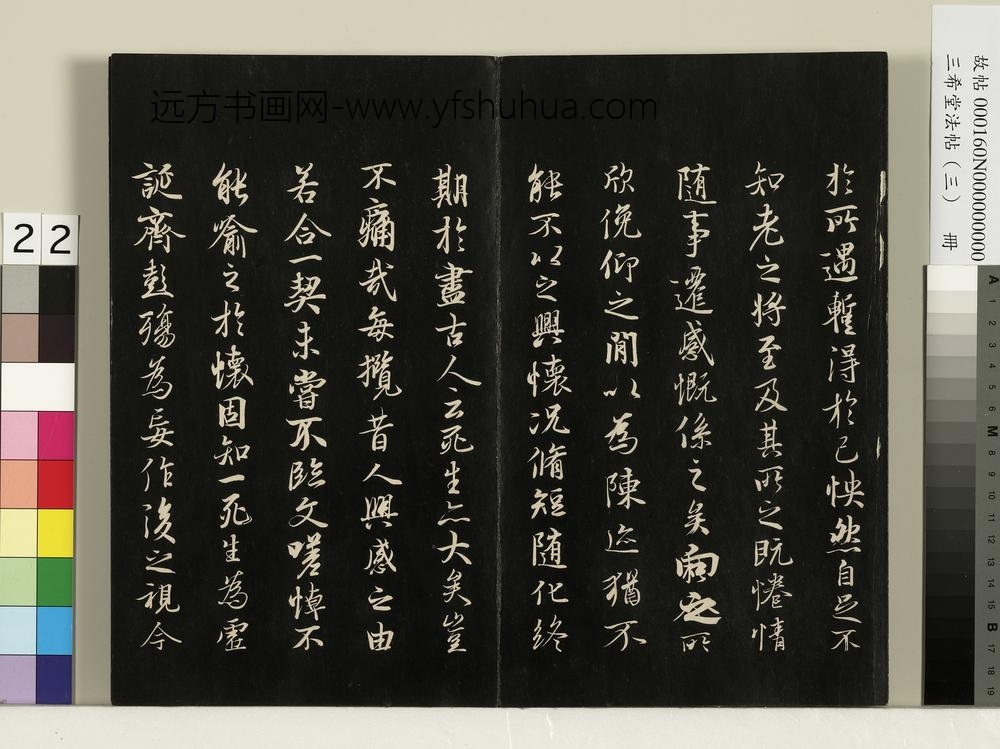 远方书画网-www.yfshuhua.com
故帖 000160N00000000
三希堂法帖(三) 冊
於所遇暫得於己怏然自足不
知老之將至及其所之既惓情
随事遷感慨係之矣向之所
欣俛仰之間以為陳迹猶不
能不以之興懷況脩短随化終
期於盡古人云死生亦大矣豈
不痛哉每攬昔人興感之由
若合一契未嘗不臨文嗟悼不
能喻之於懷固知一死生為虛
誕齊彭殤為妄作後之視今
22
A 1 2 3 4 5 6 M 8 9 10 11 12 13 14 15 B 17 18 19